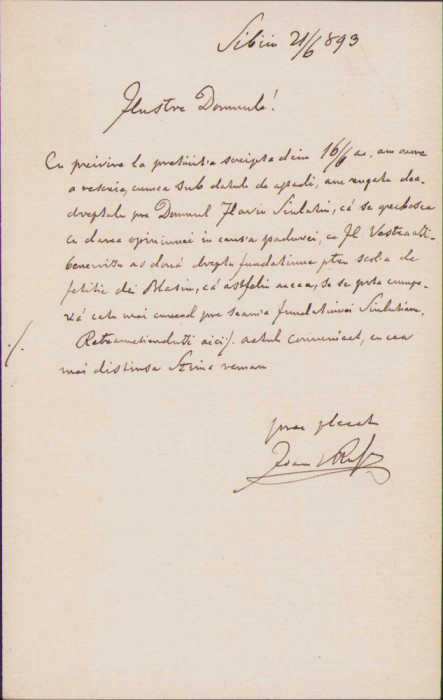 Sibiiu 21/6 1893
Ilustre Domnule!
Cu privire la pretiuita scripta din 16/6 a.c. am onore
a rescrie, cumca sub datulu de astadi, am rugatu dea-
dreptulu pre Domnul Flaviu Siulutiu, că se grabesca
cu darea opiniunei in causa padurei, ce Il. Vestra ati
benevoitu a o donă drept fundatiune ptru scola de
fetitie din Blasiu, că astfeliu aceea, sa se pota cumpe-
ră catu mai curendu pre seama fundatiunei Siulutiane.
./. Retramitiendu-ti aici ./. actulu comunicat, cu cea
mai distinsa Stima remanu
prea plecat
Ioan